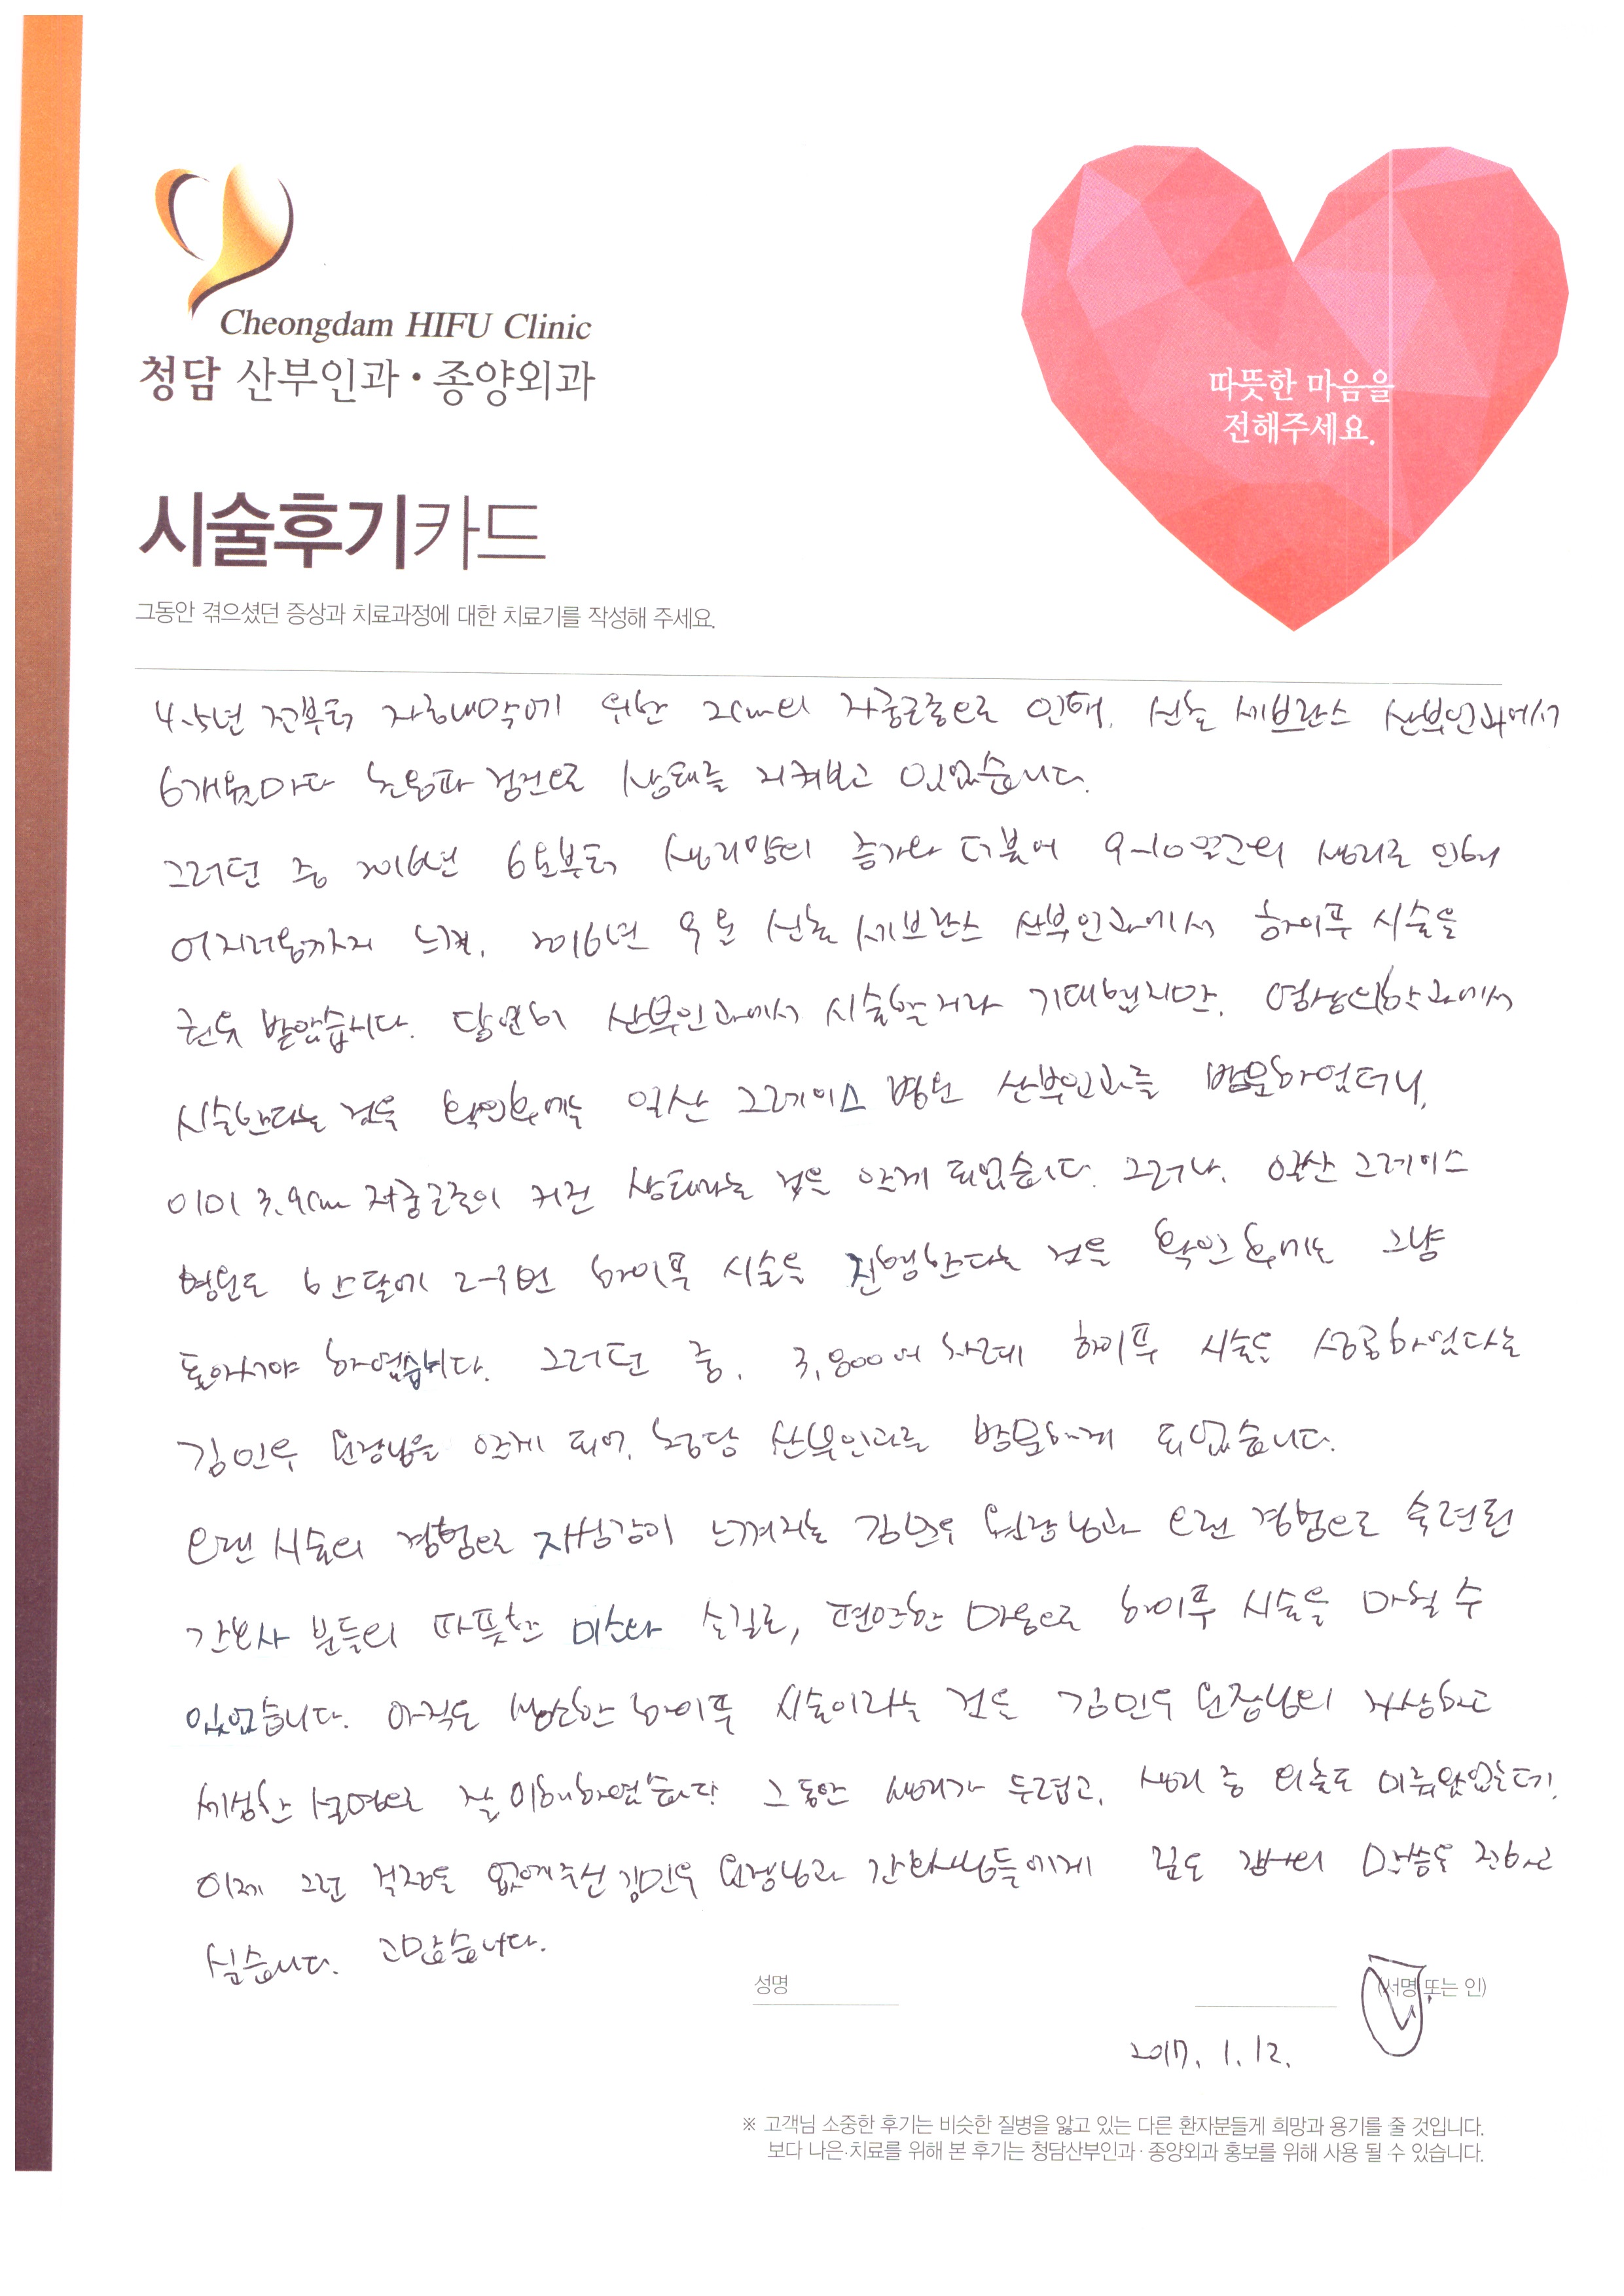 Cheongdam HIFU Clinic
청담 산부인과·종양외과
따뜻한 마음을
전해주세요.
시술후기카드
그동안 겪으셨던 증상과 치료과정에 대한 치료기를 작성해 주세요.
4-5년 전부터 자궁내막에 위한 2cm의 자궁근종으로 인해, 신촌 세브란스 산부인과에서
6개월마다 초음파 검진으로 상태를 지켜보고 있었습니다.
그러던 중 2016년 6월부터 생리양의 증가와 더불어 9-10일간의 생리로 인해
어지러움까지 느껴, 2016년 9월 신촌 세브란스 산부인과에서 하이푸 시술을
권유 받았습니다. 당연히 산부인과에서 시술할거라 기대했지만, 영상의학과에서
시술한다는 것을 확인후에는 일산 그레이스 병원 산부인과를 방문하였더니,
이미 3.9cm 자궁근종이 커진 상태라는 것을 알게 되었습니다. 그러나, 일산 그레이스
병원도 한달에 2-3번 하이푸 시술을 진행한다는 것을 확인후에는 그냥
돌아서야 하였습니다. 그러던 중, 3,800여 차례 하이푸 시술을 성공하였다는
김민우 원장님을 알게 되어, 청담 산부인과를 방문하게 되었습니다.
오랜 시술의 경험으로 자신감이 느껴지는 김민우 원장님과 오랜 경험으로 숙련된
간호사 분들의 따뜻한 미소와 손길로, 편안한 마음으로 하이푸 시술을 마칠 수
있었습니다. 아직은 생소한 하이푸 시술이라는 것을 김민우 원장님의 자상하고
세심한 설명으로 잘 이해하였습니다 그동안 생리가 두렵고, 생리 중 외출도 미뤄왔었는데,
이제 그런 걱정을 없애주신 김민우 원장님과 간호사님들에게 깊은 감사의 말씀을 전하고
싶습니다. 고맙습니다.
성명 (서명 또는 인)
2017. 1. 12.
※ 고객님 소중한 후기는 비슷한 질병을 앓고 있는 다른 환자분들게 희망과 용기를 줄 것입니다.
보다 나은·치료를 위해 본 후기는 청담산부인과·종양외과 홍보를 위해 사용 될 수 있습니다.